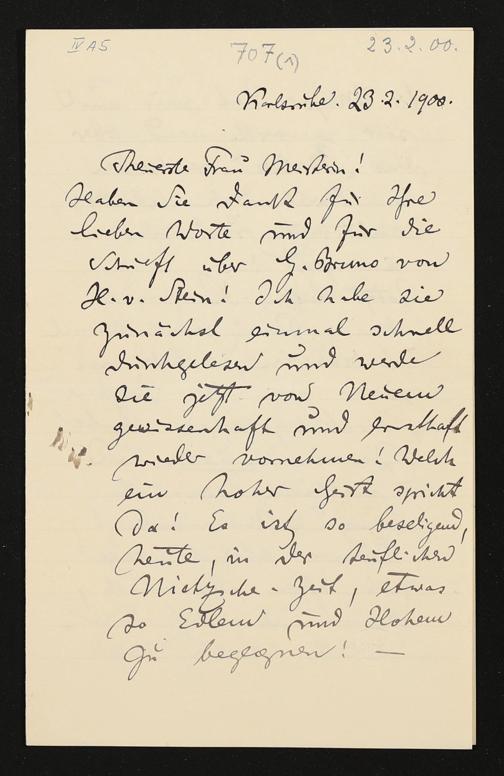 IV A5
707(1)
23.2.00.
Karlsruhe. 23.2.1900.
Theuerste Frau Meisterin!
Haben Sie Dank für Ihre
lieben Worte und für die
Schrift über G. Bruno von
H. v. Stein! Ich habe sie
zunächst einmal schnell
durchgelesen und werde
sie jetzt von Neuem
gewissenhaft und ernsthaft
wieder vornehmen! Welch
ein hoher Geist spricht
da! Es ist so beseligend,
heute, in der teuflischen
Nietzsche-Zeit, etwas
so Edlem und Hohem
zu begegnen! —